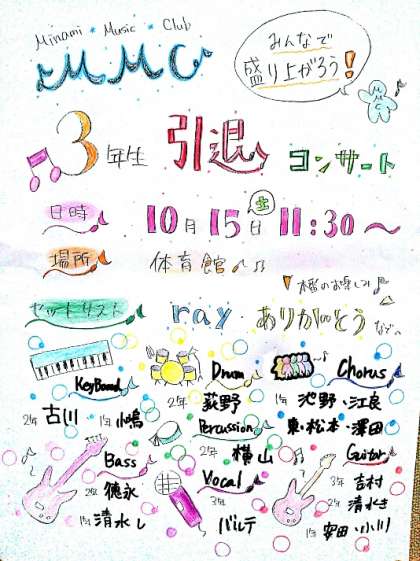 Minami • Music • Club
MMC
みんなで
盛り上がろう!
MMC
3年生 引退 コンサート
日時 10月15日 土 11:30〜
場所 体育館
本番のお楽しみ
セットリスト ray ありがとう などへ
KeyBoard
2年 古川 1年 小嶋
Drum
2年 荻野
Chorus
1年 池野・江良
東・松本・澤田
Percussion
2年 横山
Bass
2年 徳永
1年 清水し
Vocal
3年 バルテ
Guitar
3年 吉村
2年 清水き
1年 安田・小川